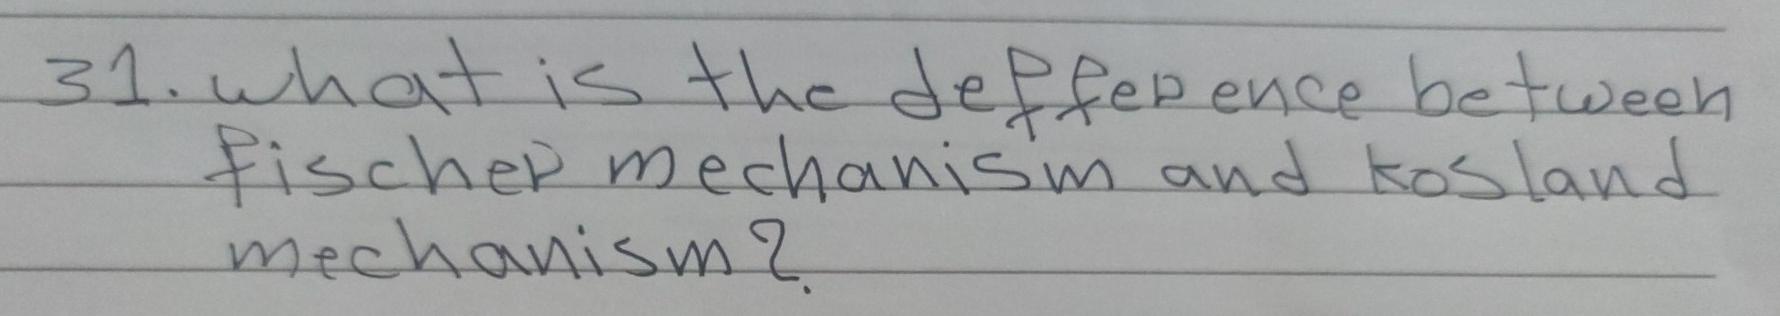 31. what is the defference between
fischer mechanism and kosland
mechanism?